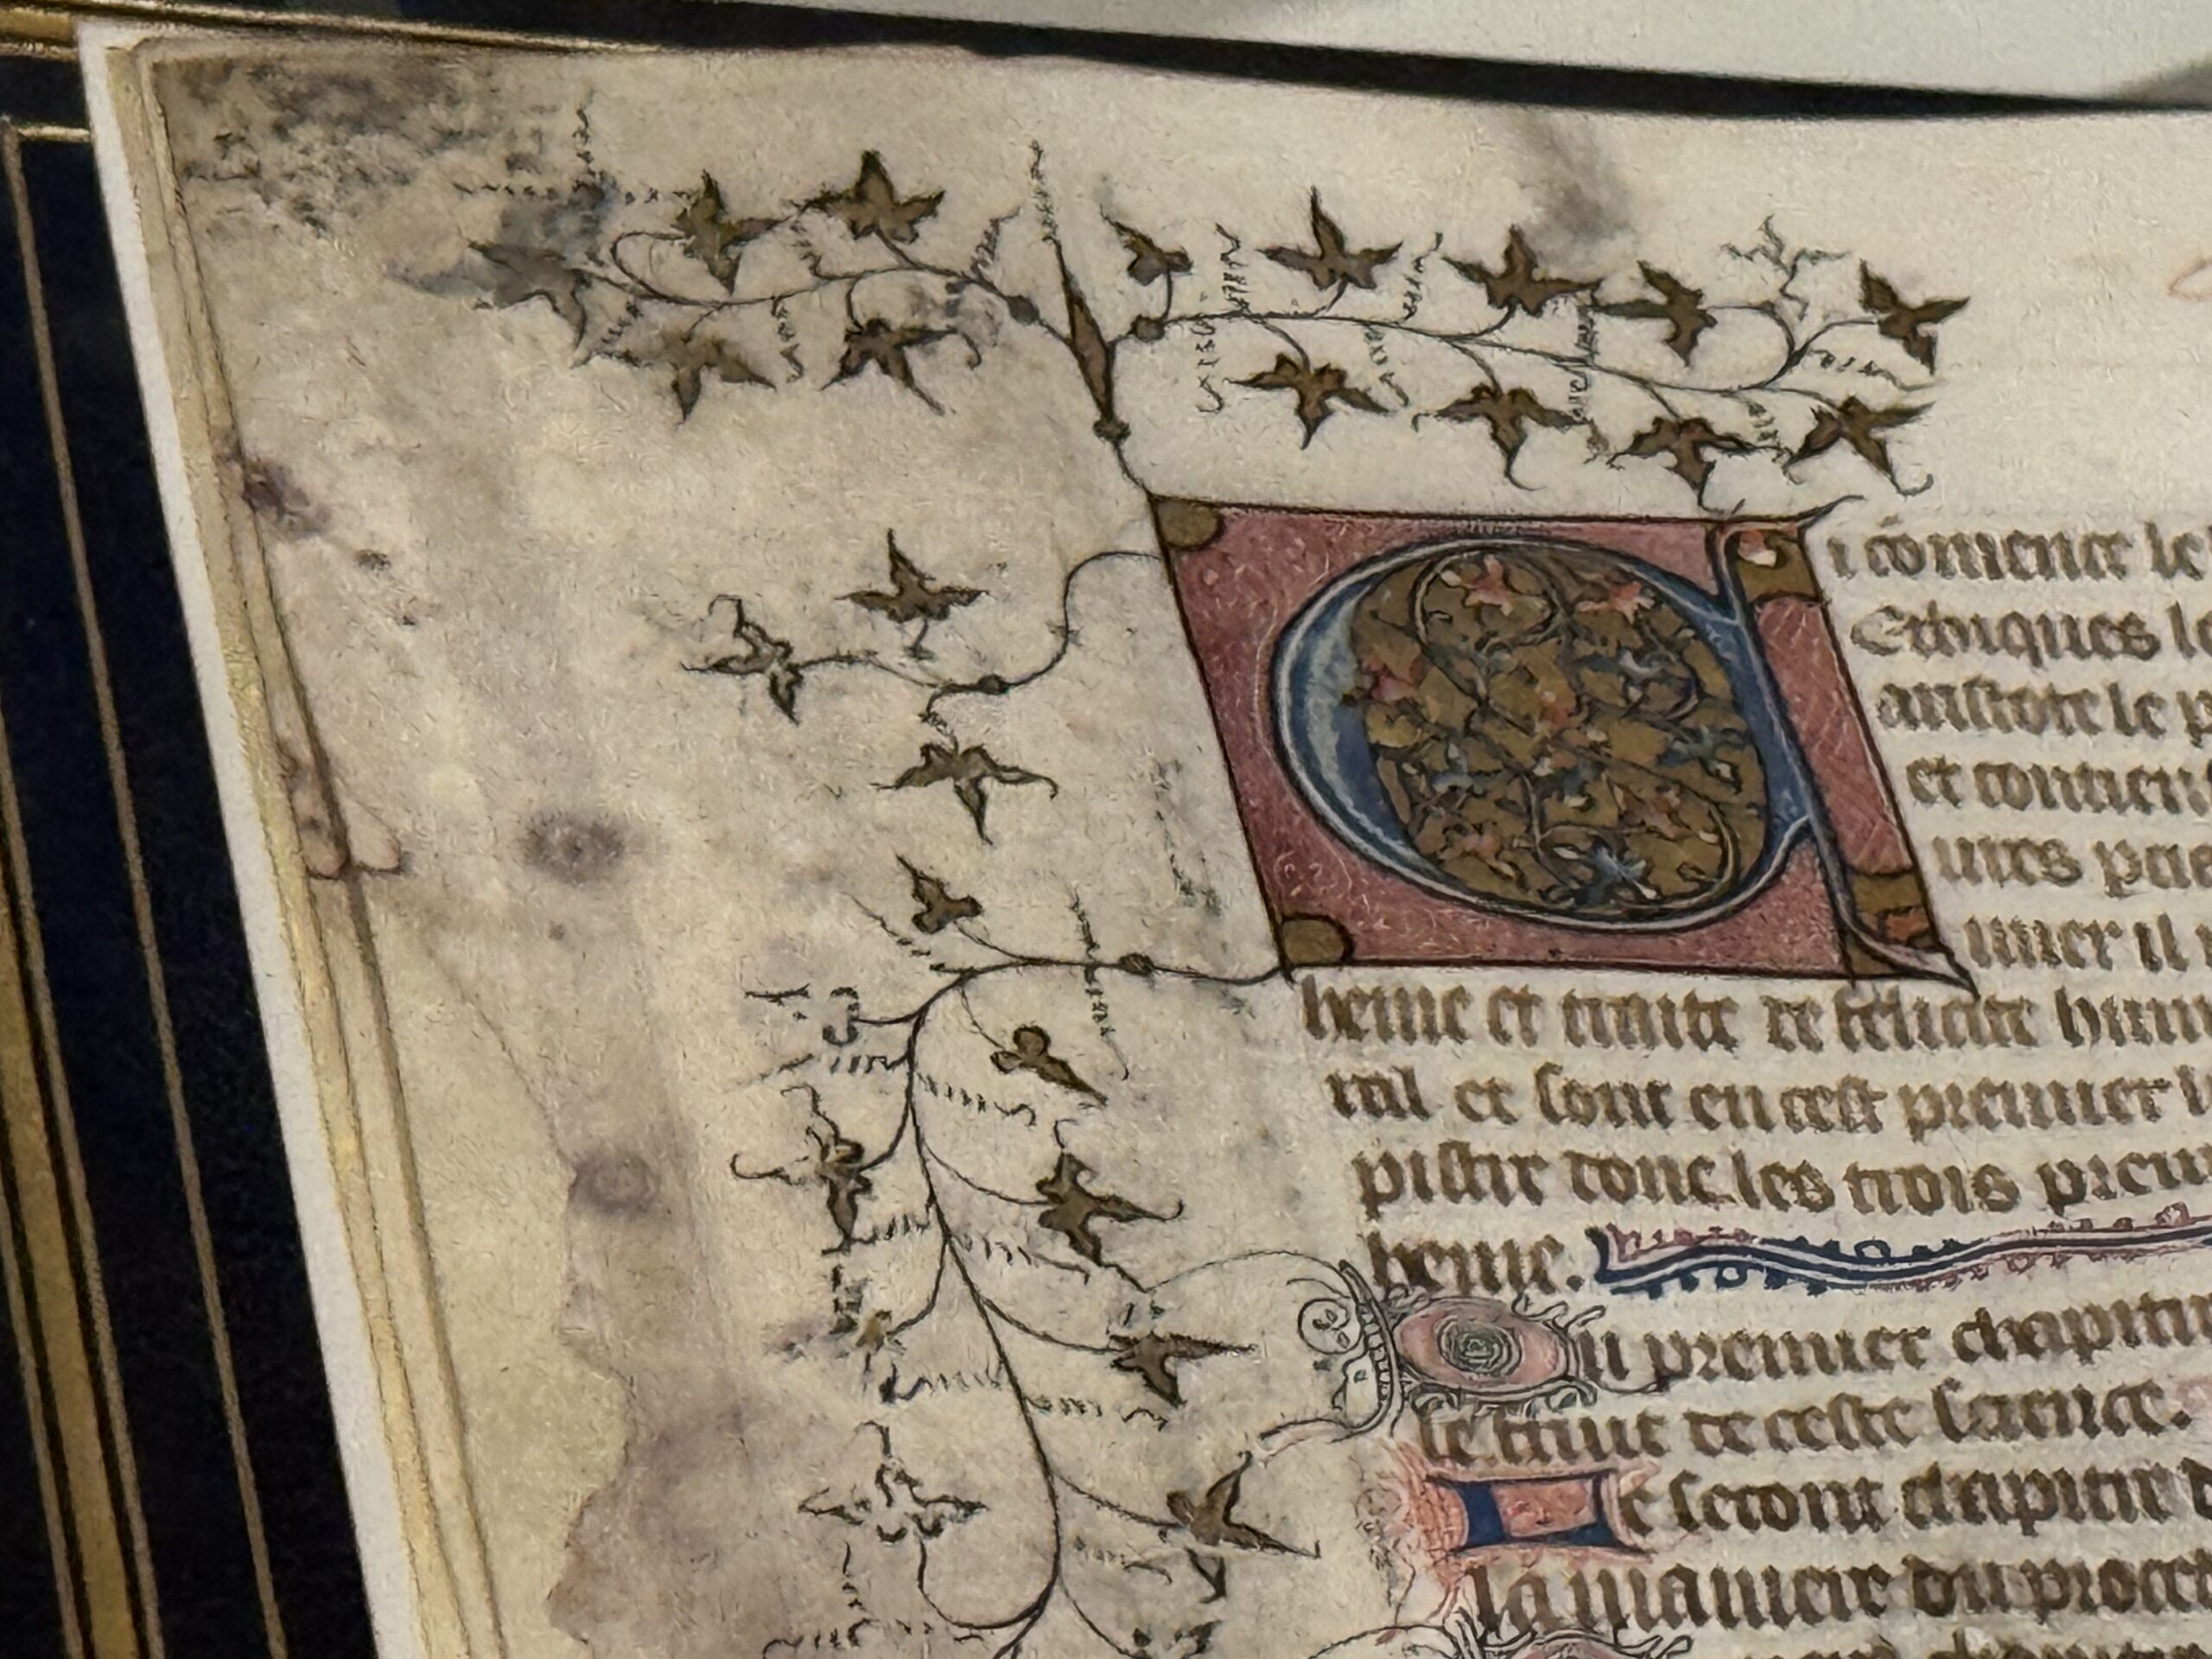 Ci comence le
Ethiques le
aristote le p
et contient
ures par
mier il
heme et traite de felicite hum
ral et sont en cest premier l
pistre donc les trois prem
heme.
Du premier chapitre
le traite de ceste science.
Le second chapitre
la maniere du proces